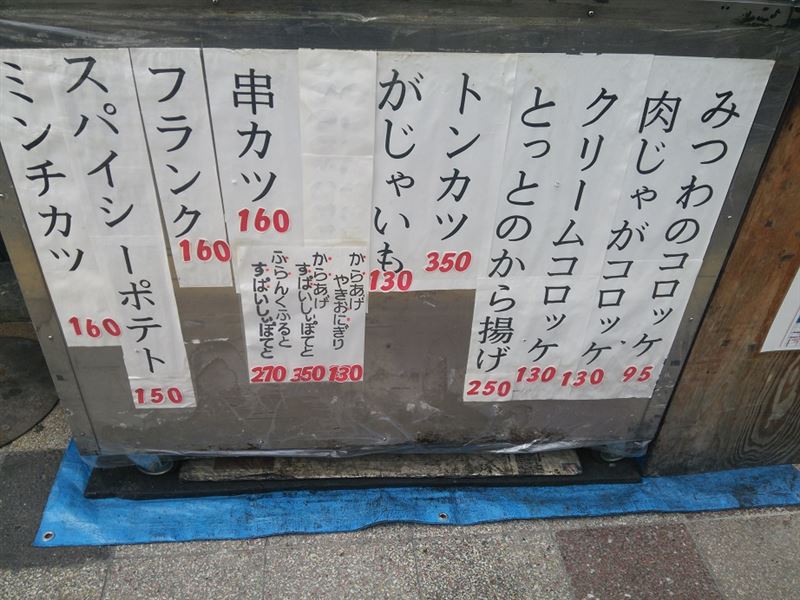 みつわのコロッケ
肉じゃがコロッケ
95
クリームコロッケ
130
とっとのから揚げ
130
250
トンカツ
350
がじゃいも
130
串カツ
160
フランク
160
スパイシーポテト
150
ミンチカツ
160
からあげ
やきおにぎり
130
からあげ
すぱいしぃぽてと
350
ふらんくふると
すぱいしぃぽてと
270